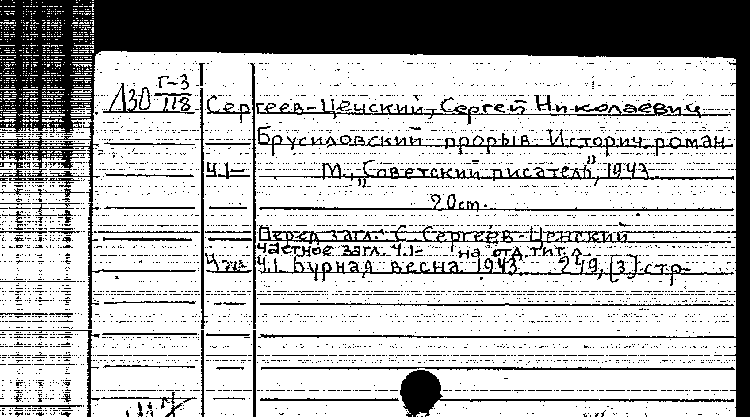 Г-3
130 118 Сергеев-Ценский, Сергей Николаевич
Брусиловский прорыв. Историч. роман
Ч.1- М., „Советский писатель”, 1943.
20 см.
Перед загл.: С. Сергеев-Ценский
Частное загл. Ч.1- на отд. тит. л.
Ч.1. Бурная весна. 1943. 249, [3] стр.